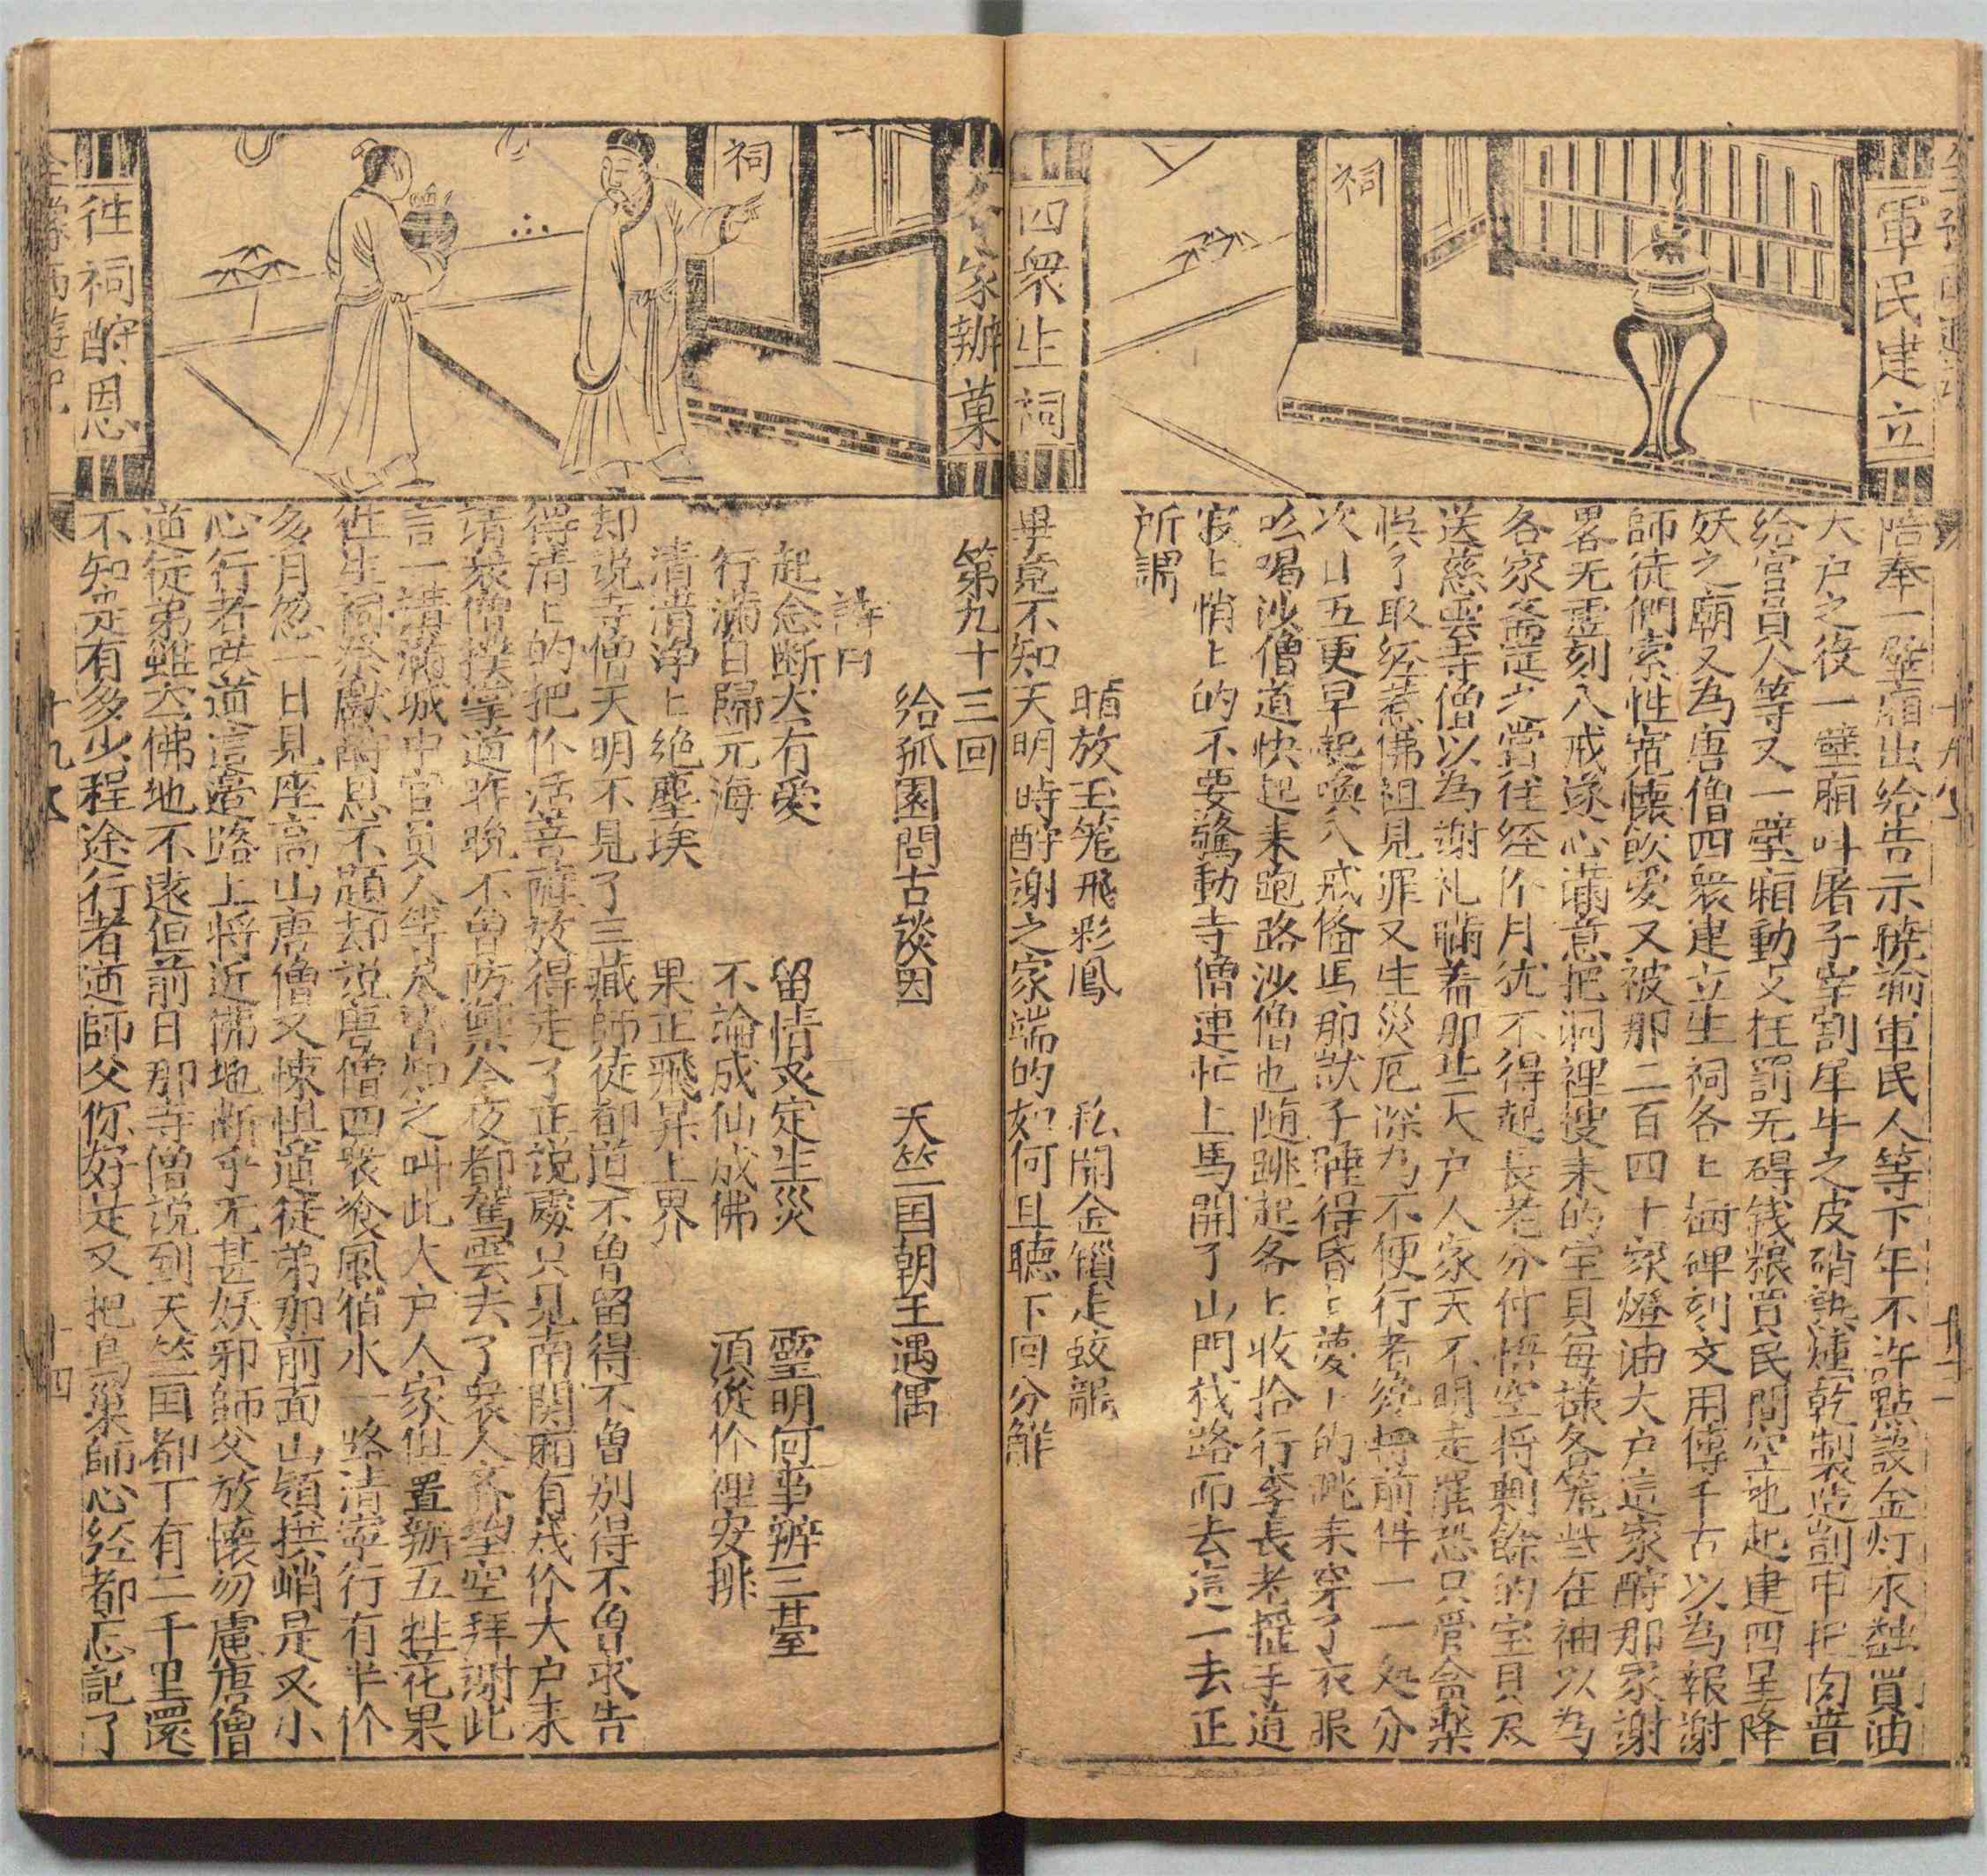 軍民建立
四衆生祠
祠
陪奉一壁廂出給告示曉諭軍民人等下年不許點設金灯永蠲買油
大户之役一壁廂叫屠子宰割犀牛之皮硝熟燻乾製造剴甲把肉普
給官員人等又一壁廂動支枉罰无碍钱粮買民間空地起建四星降
妖之廟又為唐僧四衆建立生祠各上樹碑刻文用傳千古以為報謝
師徒們索性寛懷飲受又被那二百四十家燈油大户這家酧那家謝
畧无虚刻八戒遂心滿意把洞裡搜来的宝貝每樣各籠些在袖以為
各家斋筵之賞住经个月犹不得起長老分付悟空将剰餘的宝貝尽
送慈雲寺僧以為謝礼瞞着那些大户人家天不明走罷恐只管貪楽
悞了取经惹佛祖見罪又生災厄深为不便行者總将前件一一处分
次日五更早起喚八戒偹馬那獃子睡得昏上夢上的跳来穿了衣服
吆喝沙僧道快起来跑路沙僧也随跳起各上收拾行李長老搖手道
寂上悄上的不要驚動寺僧連忙上馬開了山門找路而去這一去正
所謂
暗放玉笼飛彩鳳 私開金鎖走蛟龍
畢竟不知天明時酧謝之家端的如何且聽下回分解
各家辦菓
徃祠酧恩
祠
第九十三回
給孤園問古談因 天竺国朝王遇偶
詩曰
起念断犬有愛 留情又定生災 霊明何事辨三䑓
行滿自歸元海 不論成仙成佛 須從个裡安排
清清净上絶塵埃 果正飛昇上界
却说寺僧天明不見了三藏師徒都道不曾留得不曾別得不曾求告
得清上的把个活菩薩放得走了正説處只見南関廂有幾个大户来
請衆僧撲掌道昨晩不曾防禦今夜都駕雲去了衆人齐望空拜謝此
言一講滿城中官員人等尽皆知之叫此大户人家俱置辦五牲花果
徃生祠祭獻酧恩不題却説唐僧四衆飡風宿水一路清寧行有半个
多月忽一日見座高山唐僧又悚惧道徒弟那前面山嶺撗峭是又小
心行者咲道這邉路上将近佛地断乎无甚妖邪師父放懐勿慮唐僧
道徒弟雖云佛地不遠但前日那寺僧説到天竺国都下有二千里還
不知是有多少程途行者道師父你好是又把烏巢師心经都忘記了